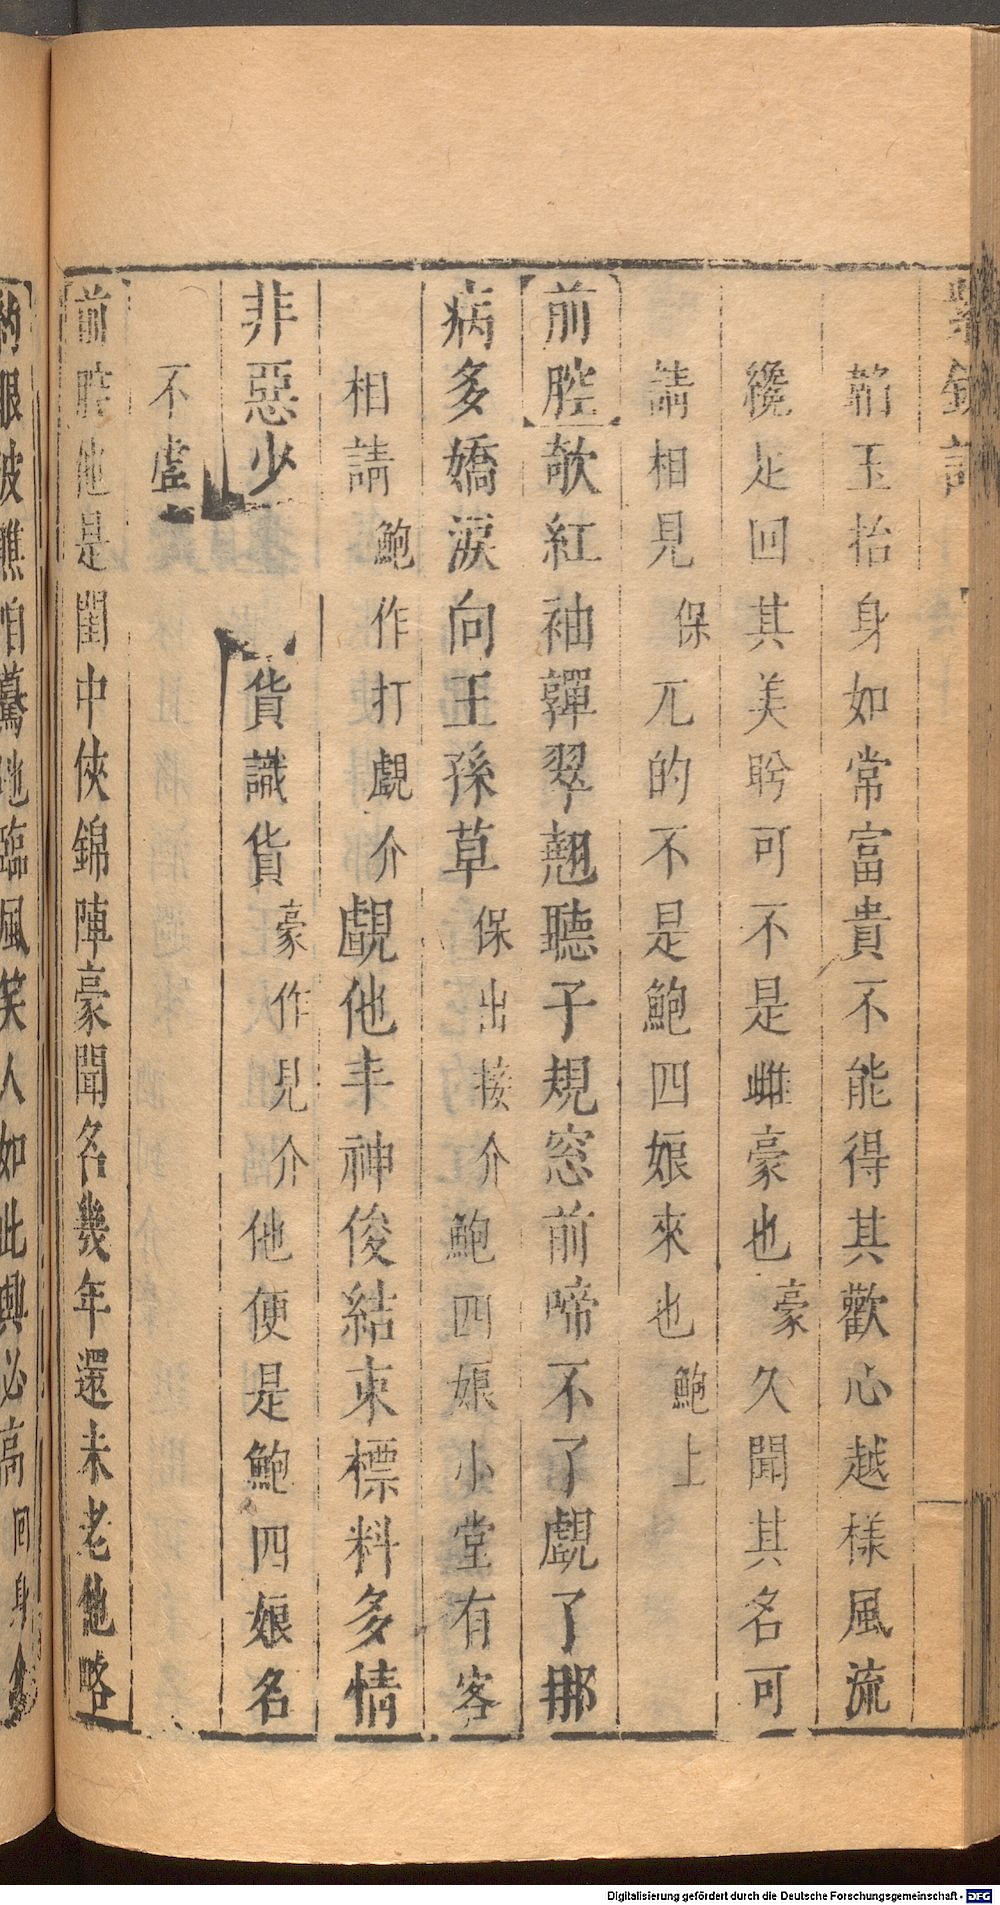 紫釵記
韜玉抬身如常富貴不能得其歡心越樣風流
纔足回其美盻可不是雌豪也豪久聞其名可
請相見保兀的不是鮑四娘來也鮑上
前腔欹紅袖嚲翠翹聽子規窓前啼不了覷了那
病多嬌淚向王孫草保出接介鮑四娘小堂有客
相請鮑作打覷介覷他丰神俊結束標料多情
非惡少貨識貨豪作見介他便是鮑四娘名
不虛
前腔他是閨中俠錦陣豪聞名幾年還未老他略
約眼波瞧咱驀地臨風笑人如此興必高回身介
Digitalisierung gefördert durch die Deutsche Forschungsgemeinschaft - DFG